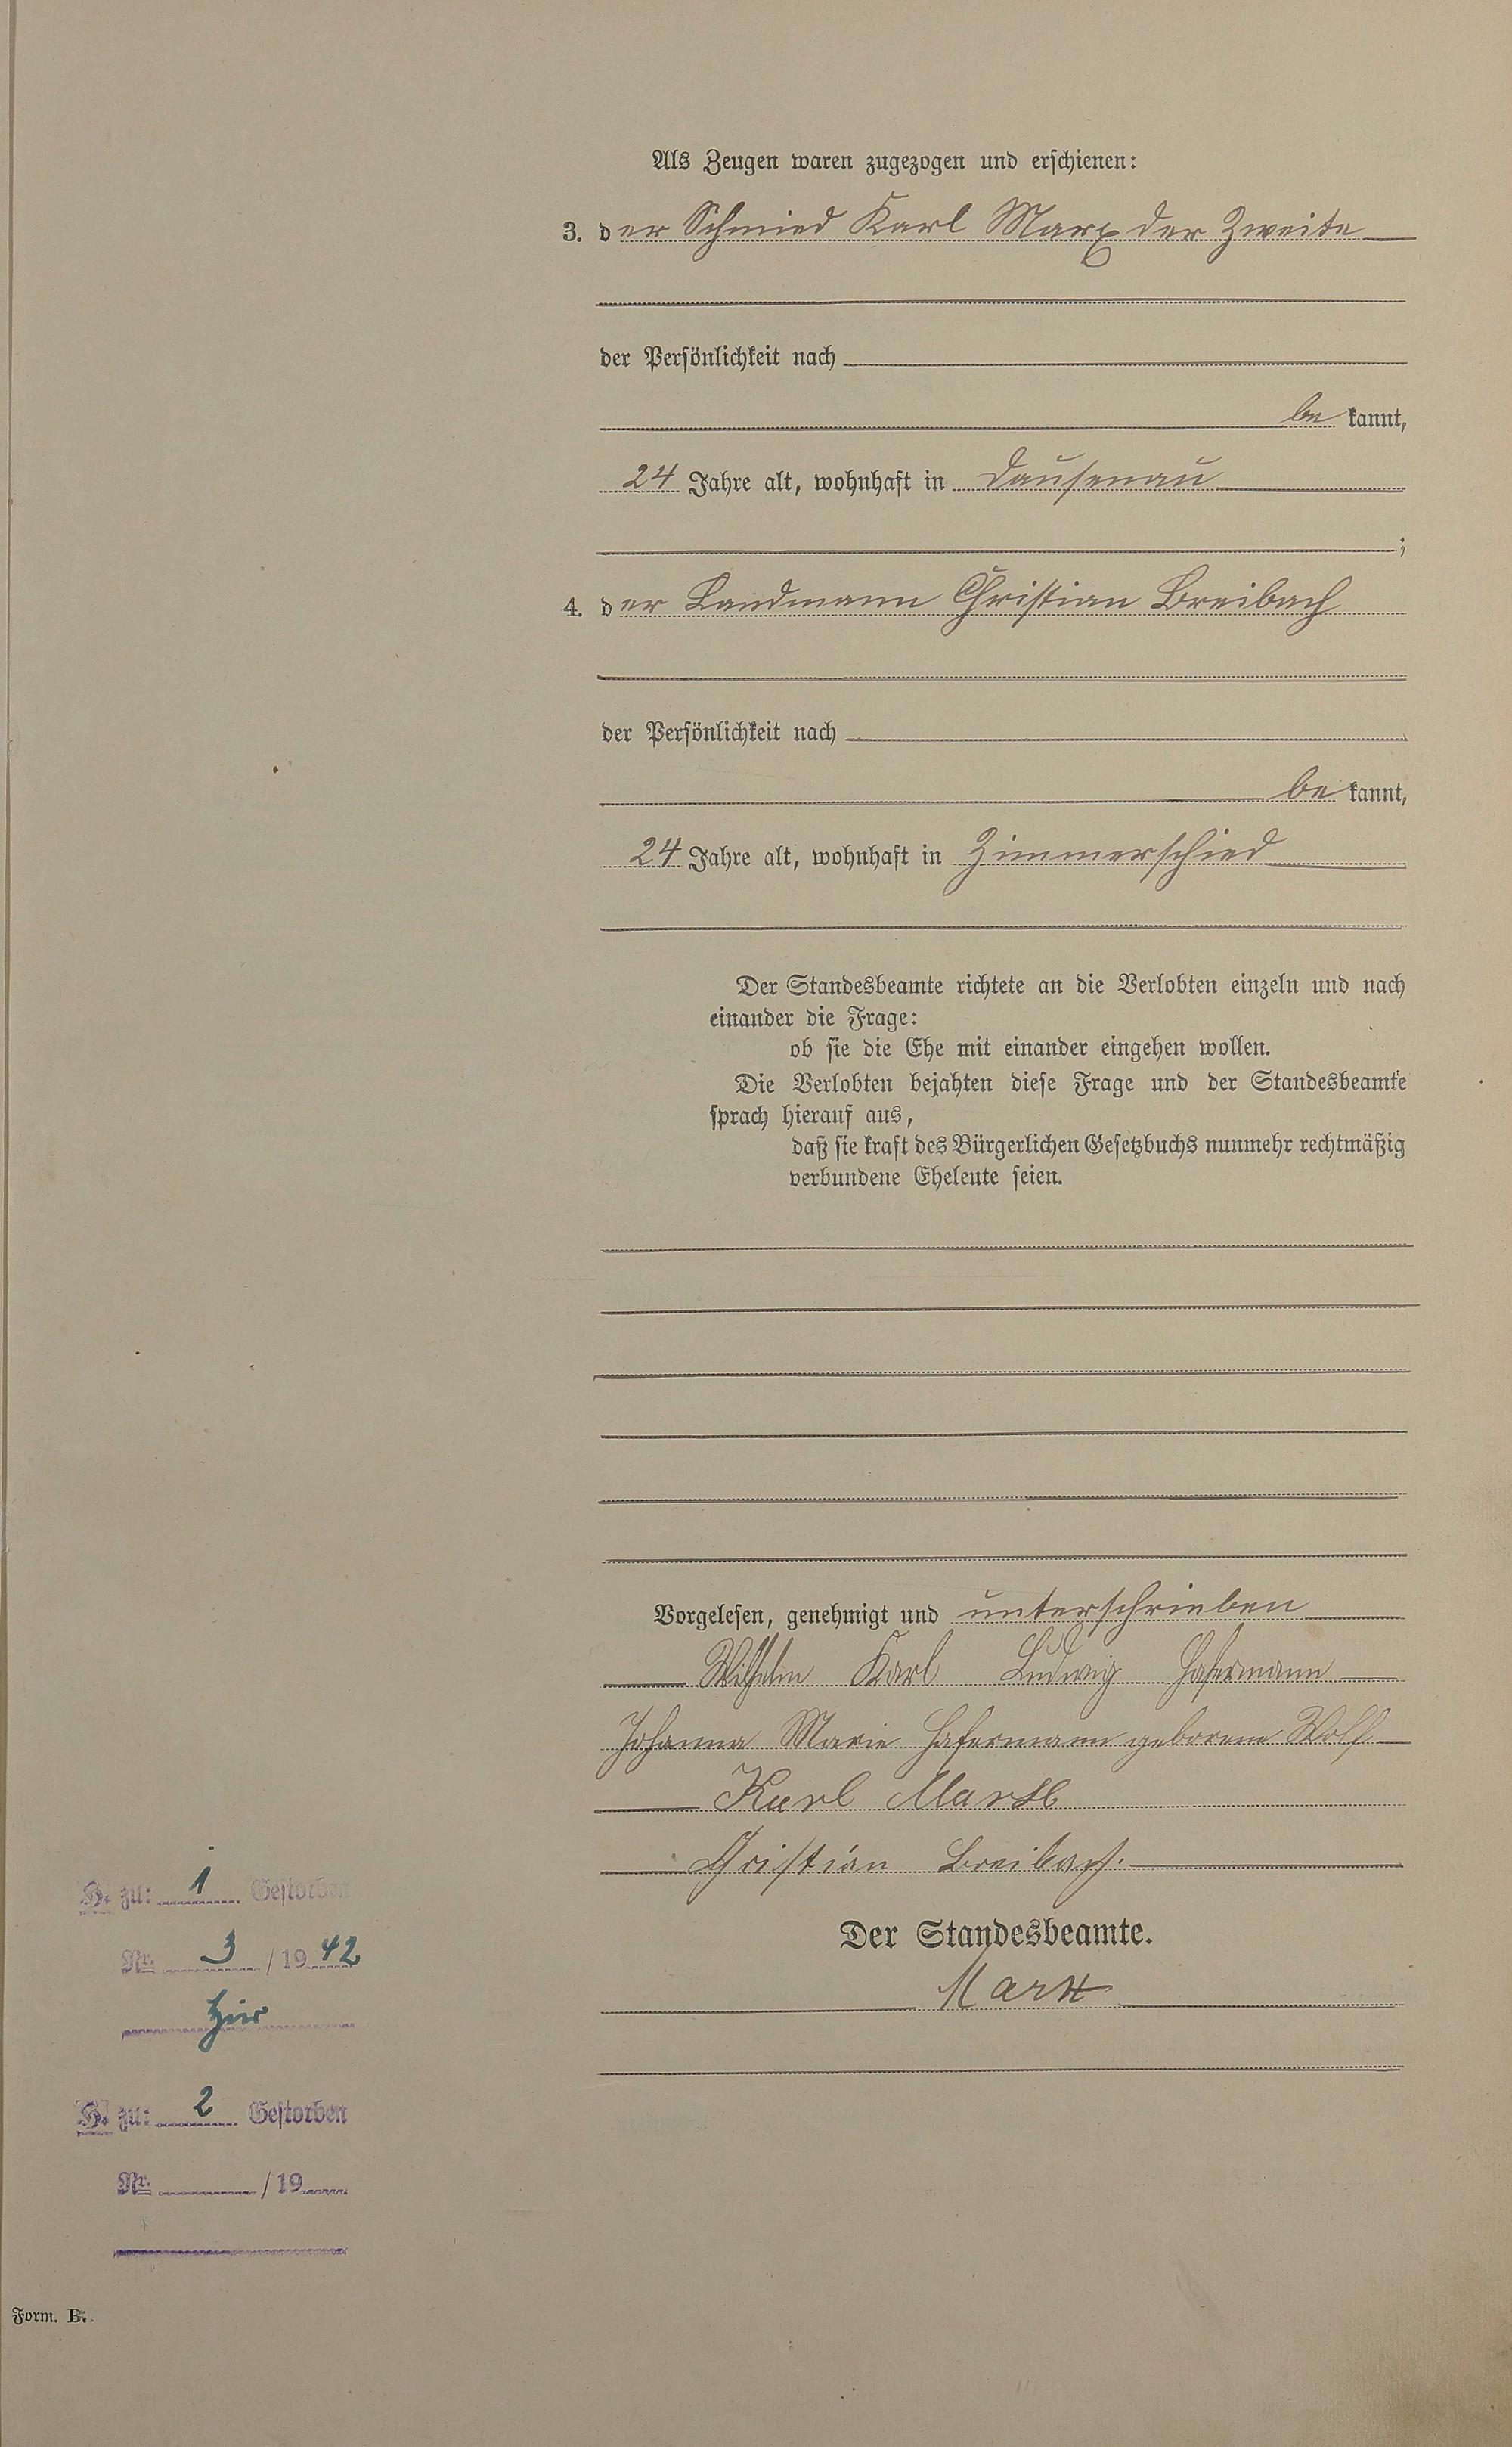 Als Zeugen waren zugezogen und erschienen:
3. der Schmied Karl Marx der Zweite
der Persönlichkeit nach
be kannt,
24 Jahre alt, wohnhaft in Dausenau
;
4. der Landmann Christian Breibach
der Persönlichkeit nach
be kannt,
24 Jahre alt, wohnhaft in Zimmerschied
Der Standesbeamte richtete an die Verlobten einzeln und nach
einander die Frage:
ob sie die Ehe mit einander eingehen wollen.
Die Verlobten bejahten diese Frage und der Standesbeamte
sprach hierauf aus,
daß sie kraft des Bürgerlichen Gesetzbuchs nunmehr rechtmäßig
verbundene Eheleute seien.
Vorgelesen, genehmigt und unterschrieben
Wilhelm Karl Ludwig Hafermann
Johanna Marie Hafermann geborene Wolf
Karl Marx
Christian Breibach.
Der Standesbeamte.
Marx
H. zu: 1 Gestorben
Nr. 3 / 19 42
hier
H. zu: 2 Gestorben
Nr. / 19
Form. B.